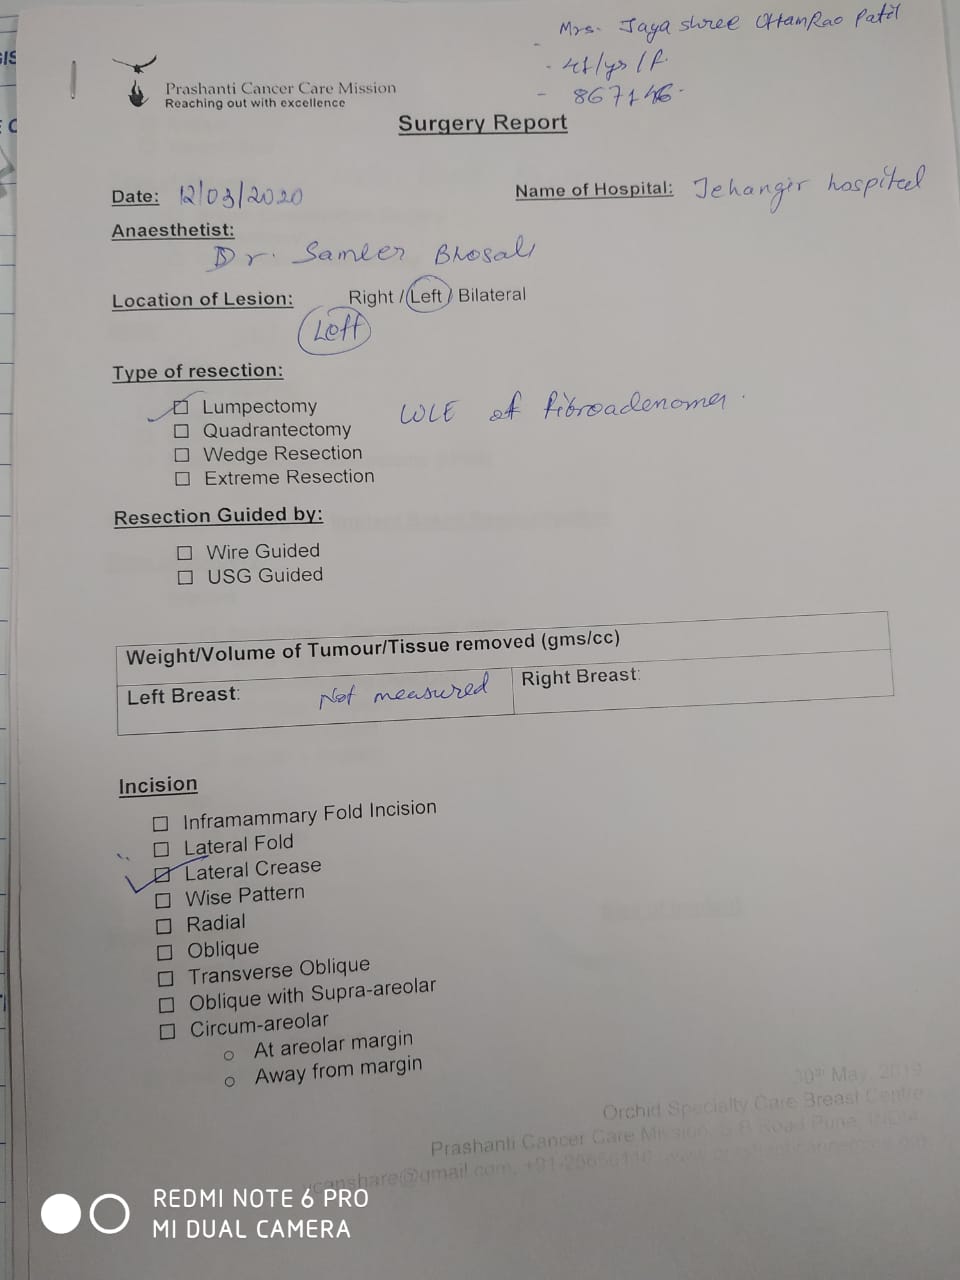 Mrs. Jayashree UttamRao Patil
- /yrs/F.
- 867146.
Prashanti Cancer Care Mission
Reaching out with excellence
Surgery Report
Date: 12/03/2020
Name of Hospital: Jehangir hospital
Anaesthetist:
Dr. Sameer Bhosale
Location of Lesion: Right / Left / Bilateral
Left
Type of resection:
☑ Lumpectomy WLE of fibroadenoma.
☐ Quadrantectomy
☐ Wedge Resection
☐ Extreme Resection
Resection Guided by:
☐ Wire Guided
☐ USG Guided
Weight/Volume of Tumour/Tissue removed (gms/cc)
Left Breast: Not measured
Right Breast:
Incision
☐ Inframammary Fold Incision
☐ Lateral Fold
☑ Lateral Crease
☐ Wise Pattern
☐ Radial
☐ Oblique
☐ Transverse Oblique
☐ Oblique with Supra-areolar
☐ Circum-areolar
o At areolar margin
o Away from margin
30th May, 2019
Orchid Specialty Care Breast Centre
Prashanti Cancer Care Mission, Road Pune, INDIA
share@gmail.com,
REDMI NOTE 6 PRO
MI DUAL CAMERA